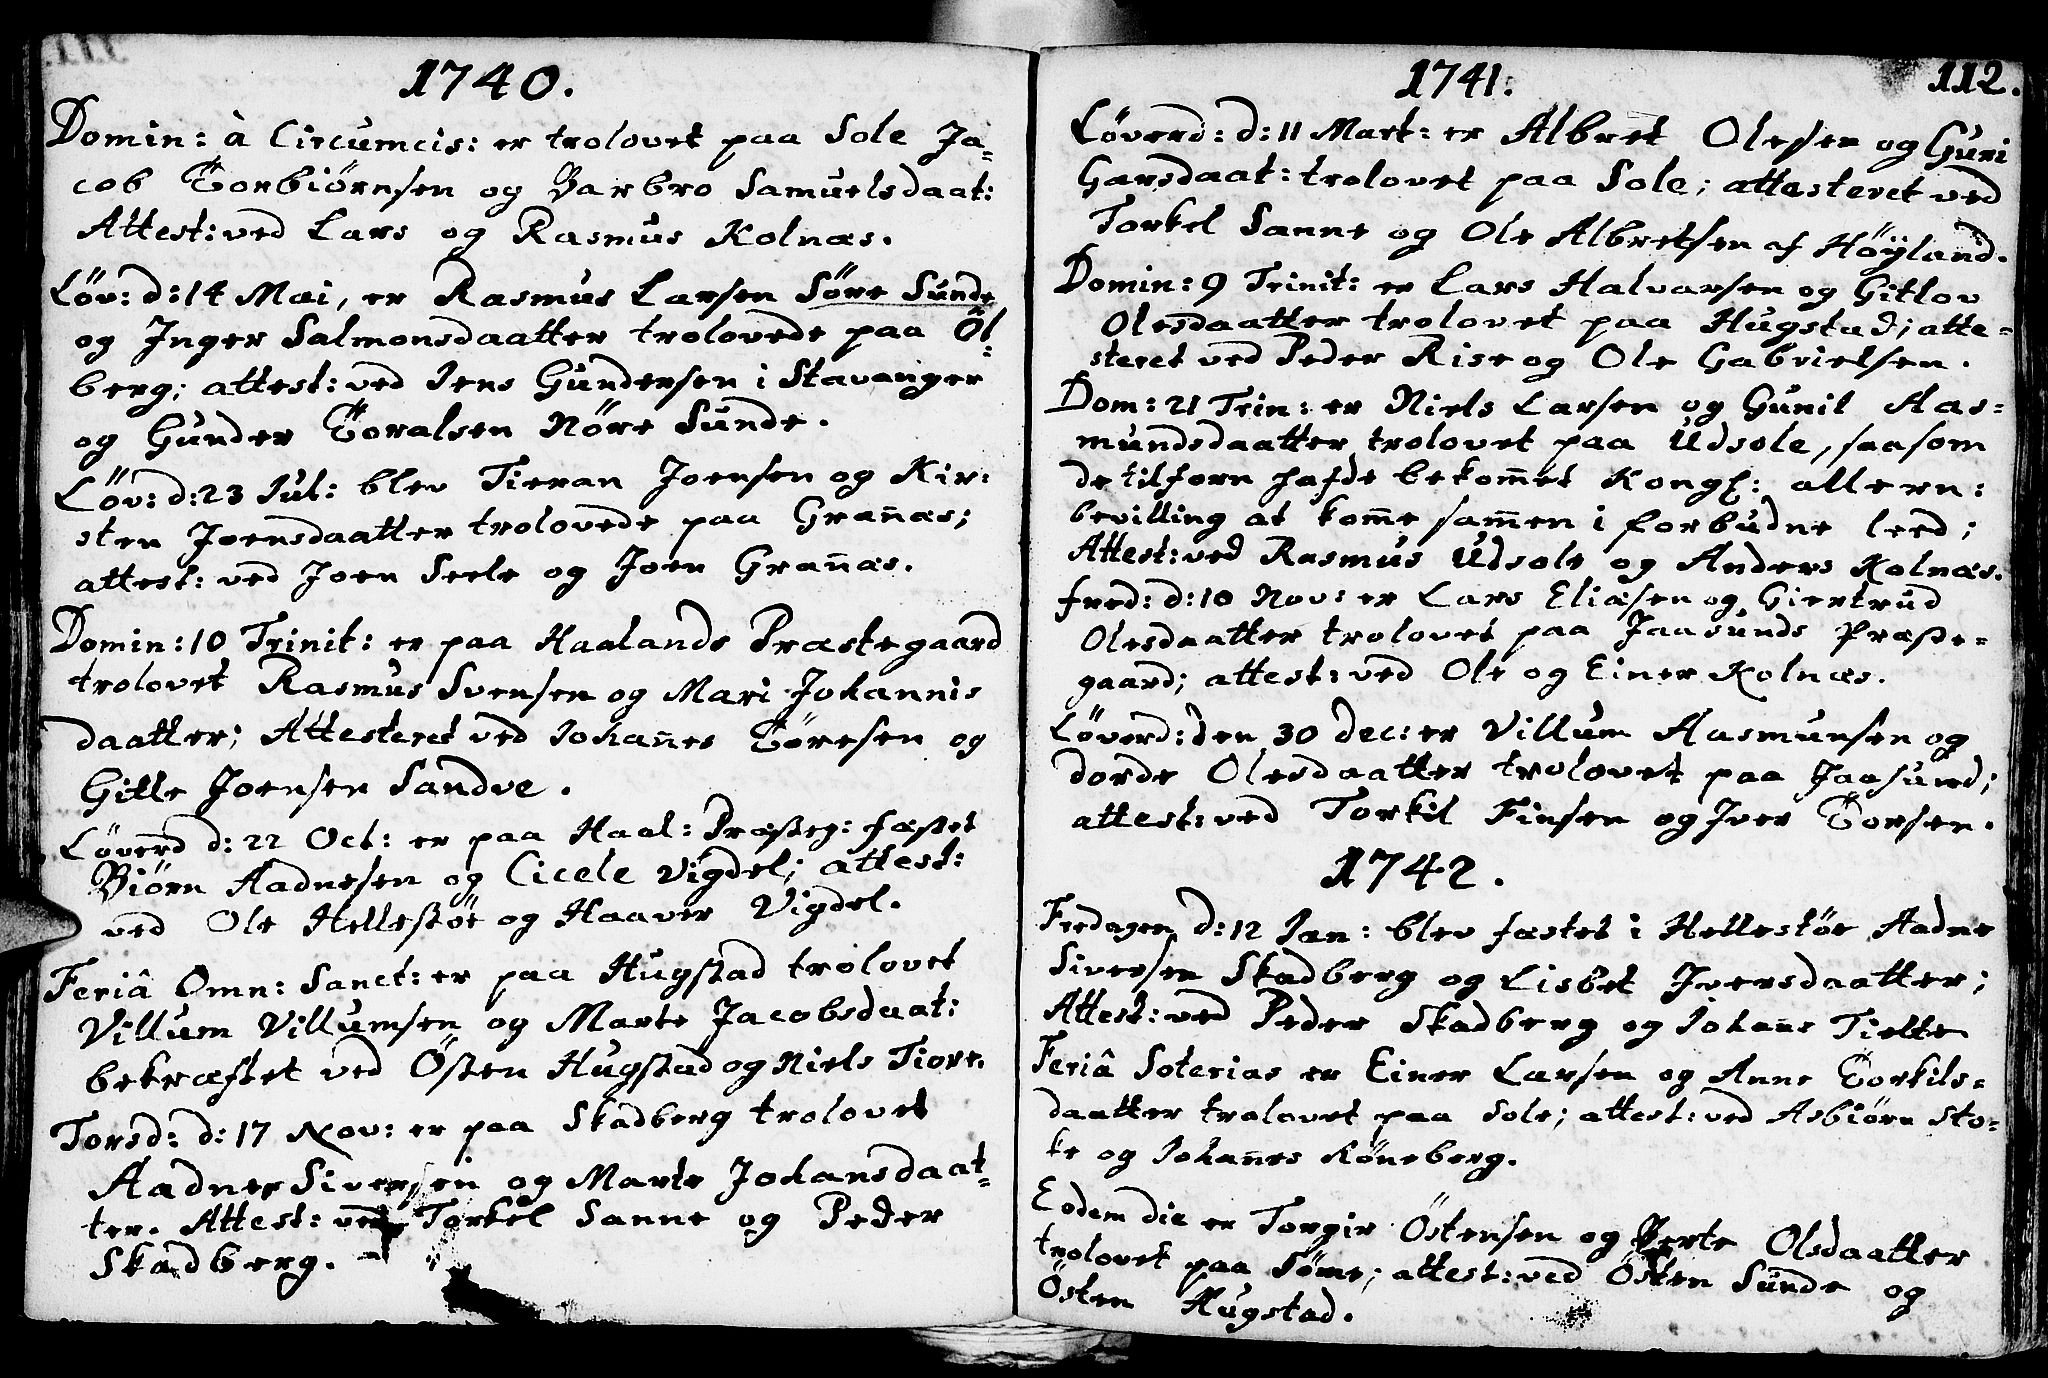 1740.
Domin: à Circumcis: er trolovet paa Sole Ja=
cob Torbiørnsen og Barbro Samuelsdaat:
Attest: ved Lars og Rasmus Kolnæs.
Löv: d: 14 Mai, er Rasmus Larsen Söre Sunde
og Inger Salmonsdaatter trolovede paa Öl=
berg; attest: ved Jens Gundersen i Stavanger
og Gunder Toralsen Nöre Sunde.
Löv: d: 23 Jul: blev Tieran Joensen og Kir=
sten Joensdaatter trolovede paa Grañæs;
attest: ved Joen Seele og Joen Grañæs.
Domin: 10 Trinit: er paa Haalands Præstegaard
trolovet Rasmus Svensen og Mari Johannis
daatter; Attesteret ved Johañes Töresen og
Gitle Joensen Sandve.
Löverd d: 22 Oct: er paa Haal: Præsteg: fæstet
Biörn Aadnesen og Cicele Vigdel; attest:
ved Ole Hellestöe og Haaver Vigdel.
Feriâ Omn: Sanct: er paa Hugstad trolovet
Villum Villumsen og Marte Jacobsdaat:
bekræftet ved Östen Hugstad og Niels Tiore.
Torsd: d: 17 Nov: er paa Skadberg trolovet
Aadne Siversen og Marte Johansdaat=
ter. Attest: ved Torkel Sanne og Peder
Skadberg.
1741:
112.
Löverd: d: 11 Mart: er Albret Olesen og Guri
Garsdaat: trolovet paa Sole; attesteret ved
Torkel Sanne og Ole Albretsen af Höyland.
Domin: 9 Trinit: er Lars Halvarsen og Gitlov
Olesdaatter trolovet paa Hugstad; atte=
steret ved Peder Rise og Ole Gabrielsen.
Dom: 21 Trin: er Niels Larsen og Gunil Aas=
mundsdaatter trolovet paa Udsole, saasom
de tilforn hafde bekom̃et Kongl: allern:
bevilling at kom̃e sam̃en i forbudne leed;
Attest: ved Rasmus Udsole og Anders Kolnæs.
fred: d: 10 Nov: er Lars Eliæsen og Giertrud
Olesdaatter trolovet paa Jaasunds Præste=
gaard; attest: ved Ole og Einer Kolnæs.
Löverd: den 30 dec: er Villum Aasmunsen og
dorde Olesdaatter trolovet paa Jaasund;
attest: ved Torkil Finsen og Iver Torsen.
1742.
Fredagen d: 12 Jan: blev fæstet i Hellestöe Aadne
Siversen Skadberg og Lisbet Iversdaatter;
Attest: ved Peder Skadberg og Johañs Tielte
Feriâ Soterias er Einer Larsen og Anne Torkils=
daatter trolovet paa Sole; attest: ved Asbiörn Sto=
ke og Johañes Röneberg.
Eodem die er Torgir Östensen og Berte Olsdaatter
trolovet paa Söme; attest: ved Östen Sunde og
Östen Hugstad.